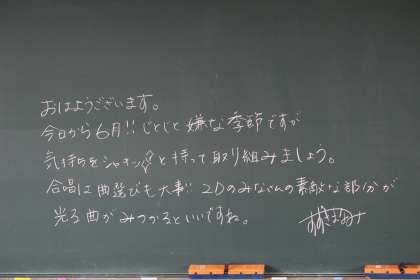 おはようございます。
今日から6月!! じとじと嫌な季節ですが
気持ちをシャキッと持って取り組みましょう。
合唱は曲選びも大事!! 2Dのみなさんの素敵な部分が
光る曲がみつかるといいですね。